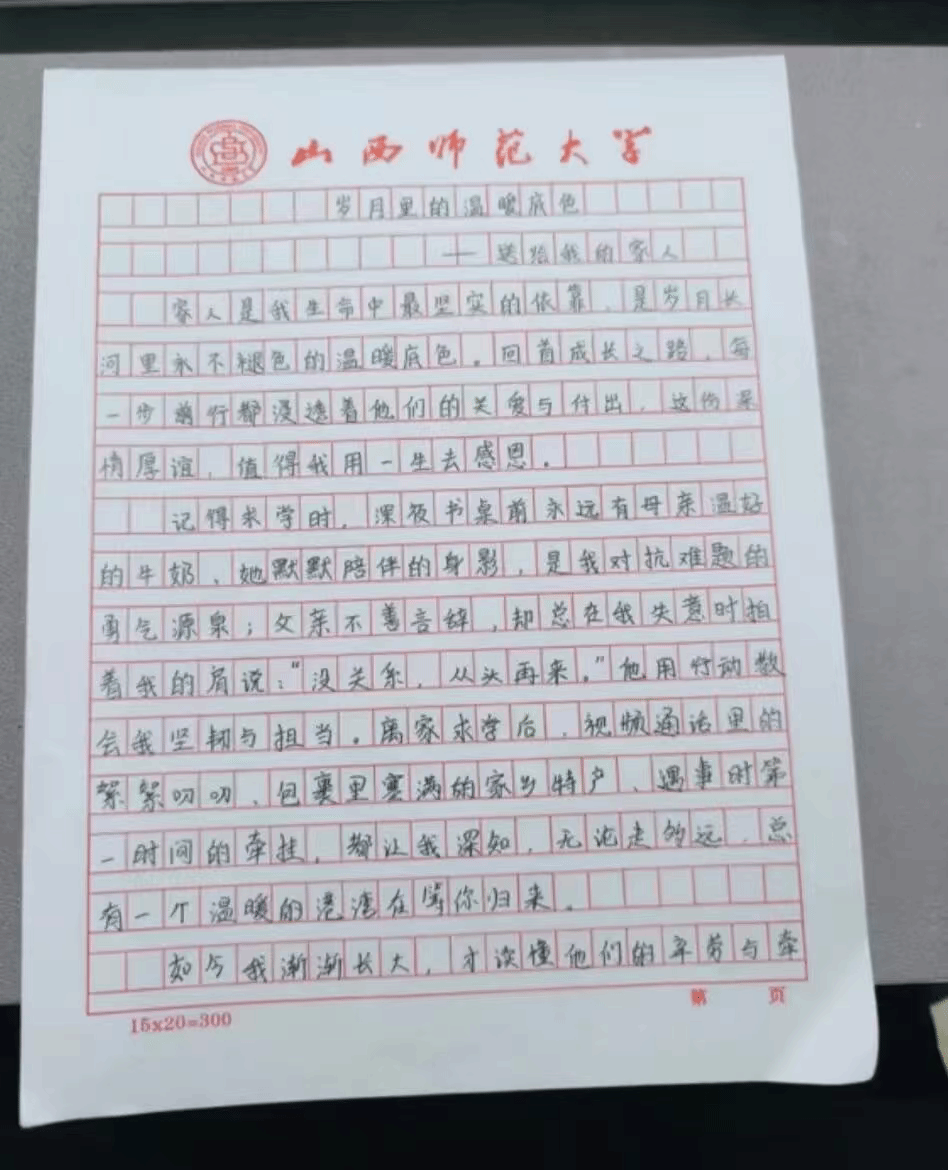 山西师范大学
岁月里的温暖底色
——送给我的家人
家人是我生命中最坚实的依靠，是岁月长
河里永不褪色的温暖底色。回首成长之路，每
一步前行都浸透着他们的关爱与付出，这份深
情厚谊，值得我用一生去感恩。
记得求学时，深夜书桌前永远有母亲温好
的牛奶、她默默陪伴的身影，是我对抗难题的
勇气源泉；父亲不善言辞，却总在我失意时拍
着我的肩说：“没关系，从头再来。”他用行动教
会我坚韧与担当。离家求学后，视频通话里的
絮絮叨叨、包裹里塞满的家乡特产、遇事时第
一时间的牵挂，都让我深知，无论走的远，总
有一个温暖的港湾在等你归来。
如今我渐渐长大，才读懂他们的辛劳与牵
15x20=300
第 页